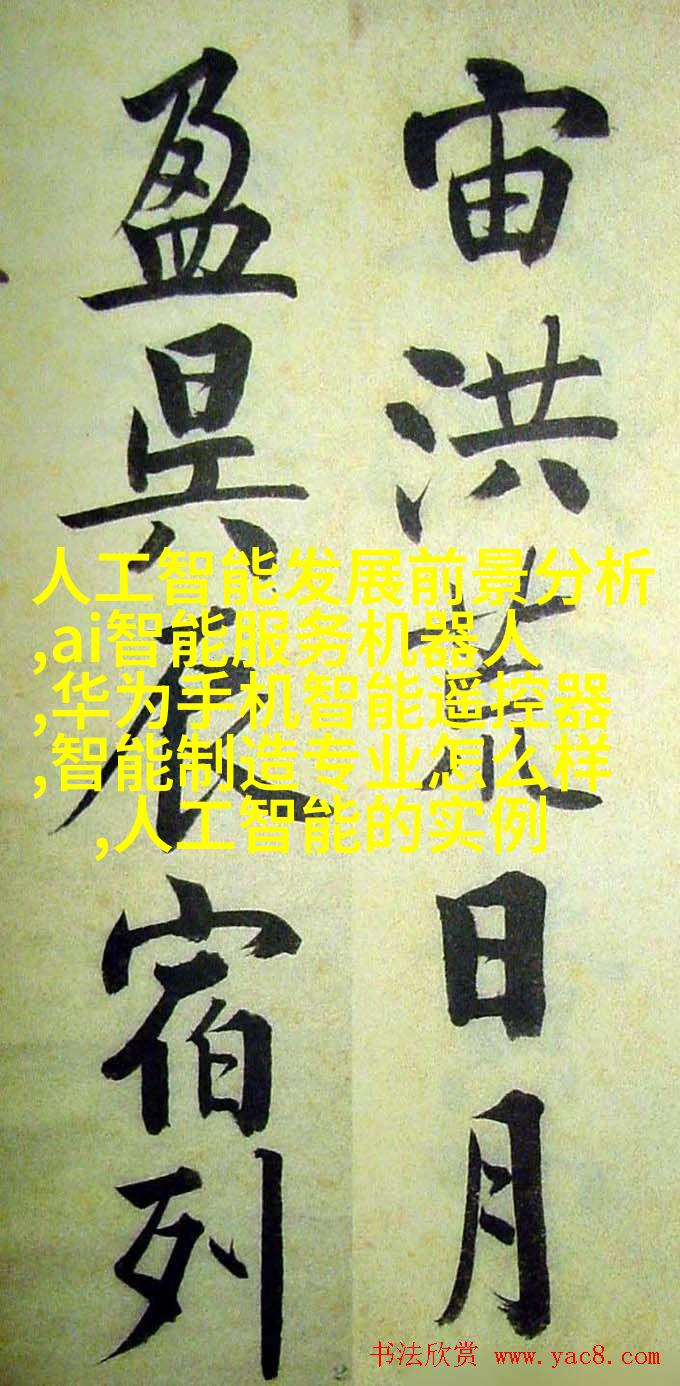 宙洪荒日月
盈昃辰宿列
人工智能发展前景分析
,ai智能服务机器人
,华为手机智能遥控器
,智能制造专业怎么样
,人工智能的实例
书法欣赏 www.yac8.com